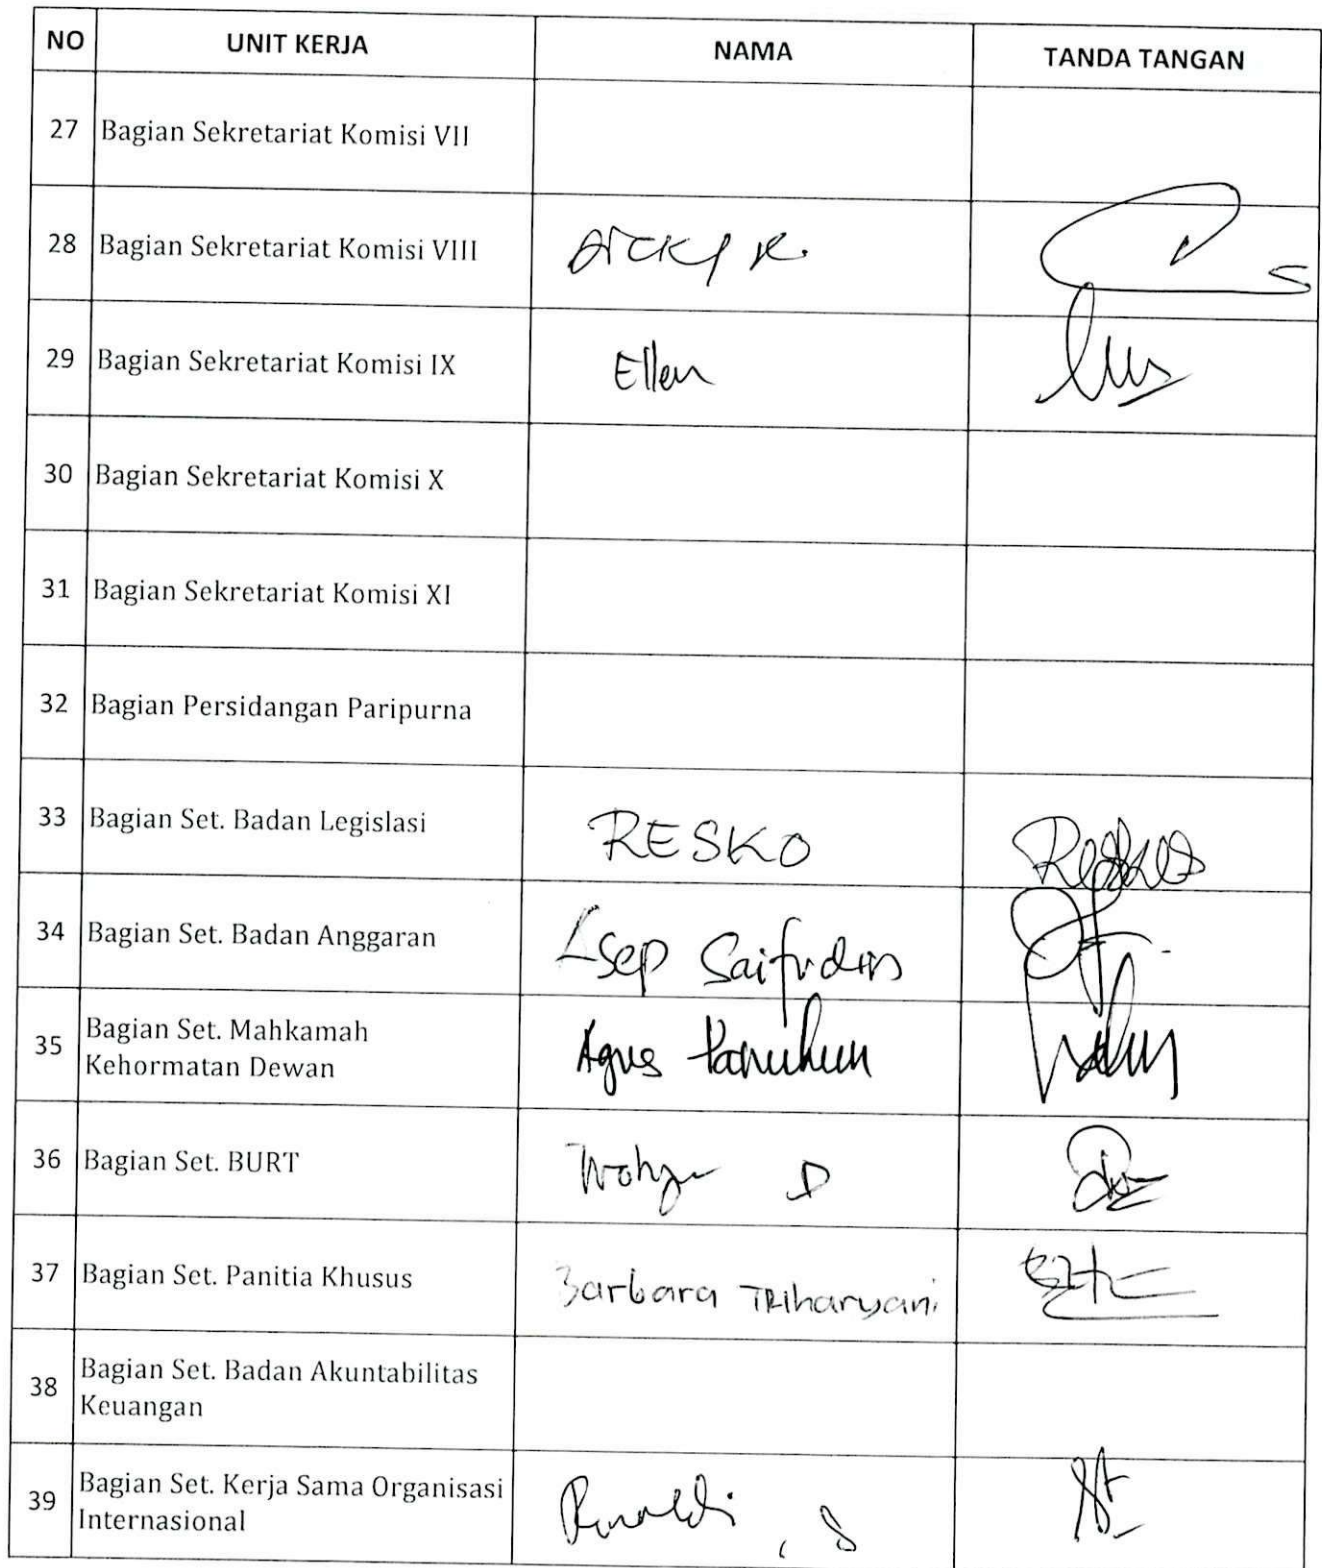 NO UNIT KERJA NAMA TANDA TANGAN
27 Bagian Sekretariat Komisi VII
28 Bagian Sekretariat Komisi VIII Dicky K.
29 Bagian Sekretariat Komisi IX Ellen
30 Bagian Sekretariat Komisi X
31 Bagian Sekretariat Komisi XI
32 Bagian Persidangan Paripurna
33 Bagian Set. Badan Legislasi RESKO
34 Bagian Set. Badan Anggaran Asep Saifudin
35 Bagian Set. Mahkamah
Kehormatan Dewan Agus
36 Bagian Set. BURT D
37 Bagian Set. Panitia Khusus Barbara Triharyani
38 Bagian Set. Badan Akuntabilitas
Keuangan
39 Bagian Set. Kerja Sama Organisasi
Internasional